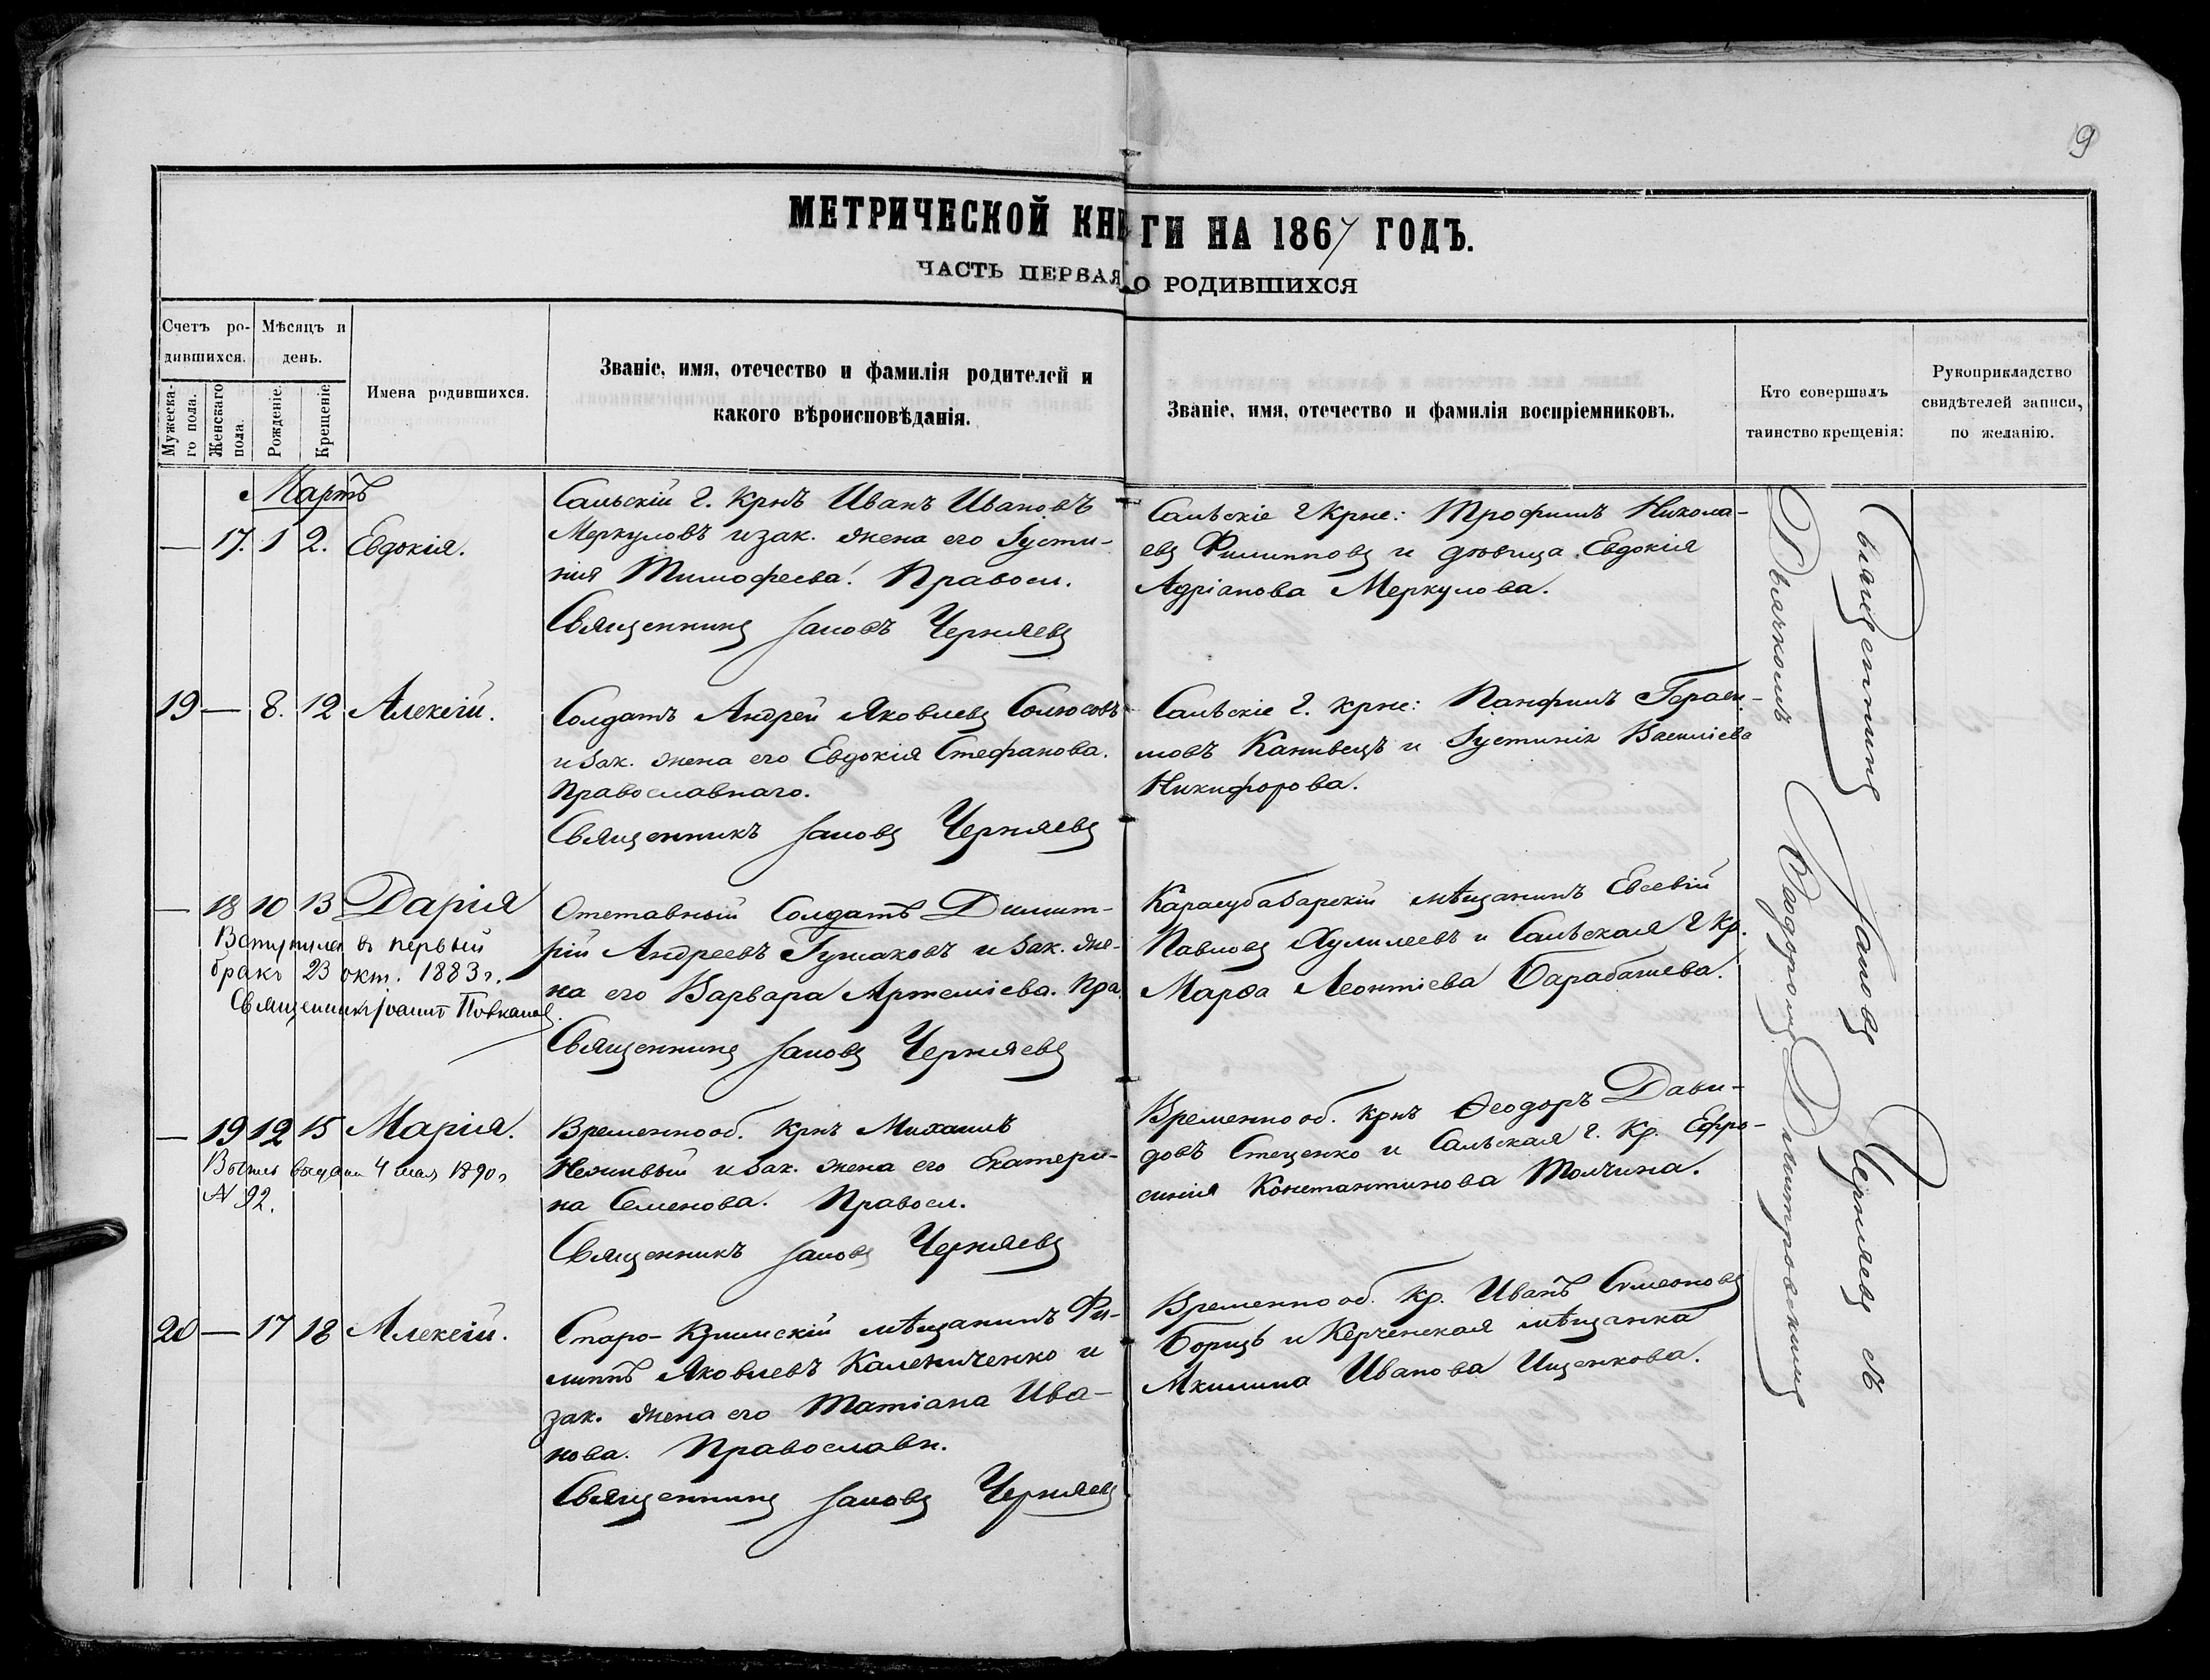 9
МЕТРИЧЕСКОЙ КНИГИ НА 1867 ГОДЪ.
ЧАСТЬ ПЕРВАЯ О РОДИВШИХСЯ
Счетъ ро-
дившихся.
Мужеска-
го пола.
Женскаго
пола.
Мѣсяцъ и
день.
Рожденіе.
Крещеніе
Имена родившихся.
Званіе, имя, отечество и фамилія родителей и
какого вѣроисповѣданія.
Званіе, имя, отечество и фамилія воспріемниковъ.
Кто совершалъ
таинство крещенія:
Рукоприкладство
свидѣтелей записи,
по желанію.
Мартъ
— 17. 1 2. Евдокія.
Сальскій г. крнъ Иванъ Ивановъ
Меркуловъ и зак. жена его Іусти-
нія Тимофеева. Правосл.
Священникъ Іаковъ Черняевъ
Сальскіе г крне: Трофимъ Никола-
евъ Филипповъ и дѣвица Евдокія
Адріанова Меркулова.
19 — 8. 12 Алексій.
Солдатъ Андрей Яковлевъ
и зак. жена его Евдокія Стефанова.
Православнаго.
Священникъ Іаковъ Черняевъ
Сальскіе г. крне: Панфилъ Гераси-
мовъ Канивецъ и Іустинія Василіева
Никифорова.
— 18 10 13 Дарія
Вступила въ первый
бракъ 23 окт. 1883 г.
Священникъ
Отставный Солдатъ Димит-
рій Андреевъ и зак. же-
на его Варвара Артеміева. Пра.
Священникъ Іаковъ Черняевъ
Карасубазарскій мѣщанинъ Евсевій
Павловъ и Сальская г кр.
Марѳа Леонтіева Барабашева.
— 19 12 15 Марія.
выдана 4 мая 1890 г
N 92.
Временнооб. крнъ Михаилъ
Неживый и зак. жена его Екатери-
на Семенова. Правосл.
Священникъ Іаковъ Черняевъ
Временнооб. крнъ Ѳеодоръ Дави-
довъ Стеценко и Сальская г. кр. Ефро-
синія Константинова Толчина.
20 — 17 18 Алексій.
Старо-Крымскій мѣщанинъ Фи-
липпъ Яковлевъ Калениченко и
зак. жена его Татіана Ива-
нова. Православн.
Священникъ Іаковъ Черняевъ
Временнооб. кр. Иванъ Симеоновъ
Борицъ и Керченская мѣщанка
Акилина Иванова Ищенкова.
Священникъ Іаковъ Черняевъ съ
Дьячкомъ Ѳеодоромъ Дмитровскимъ